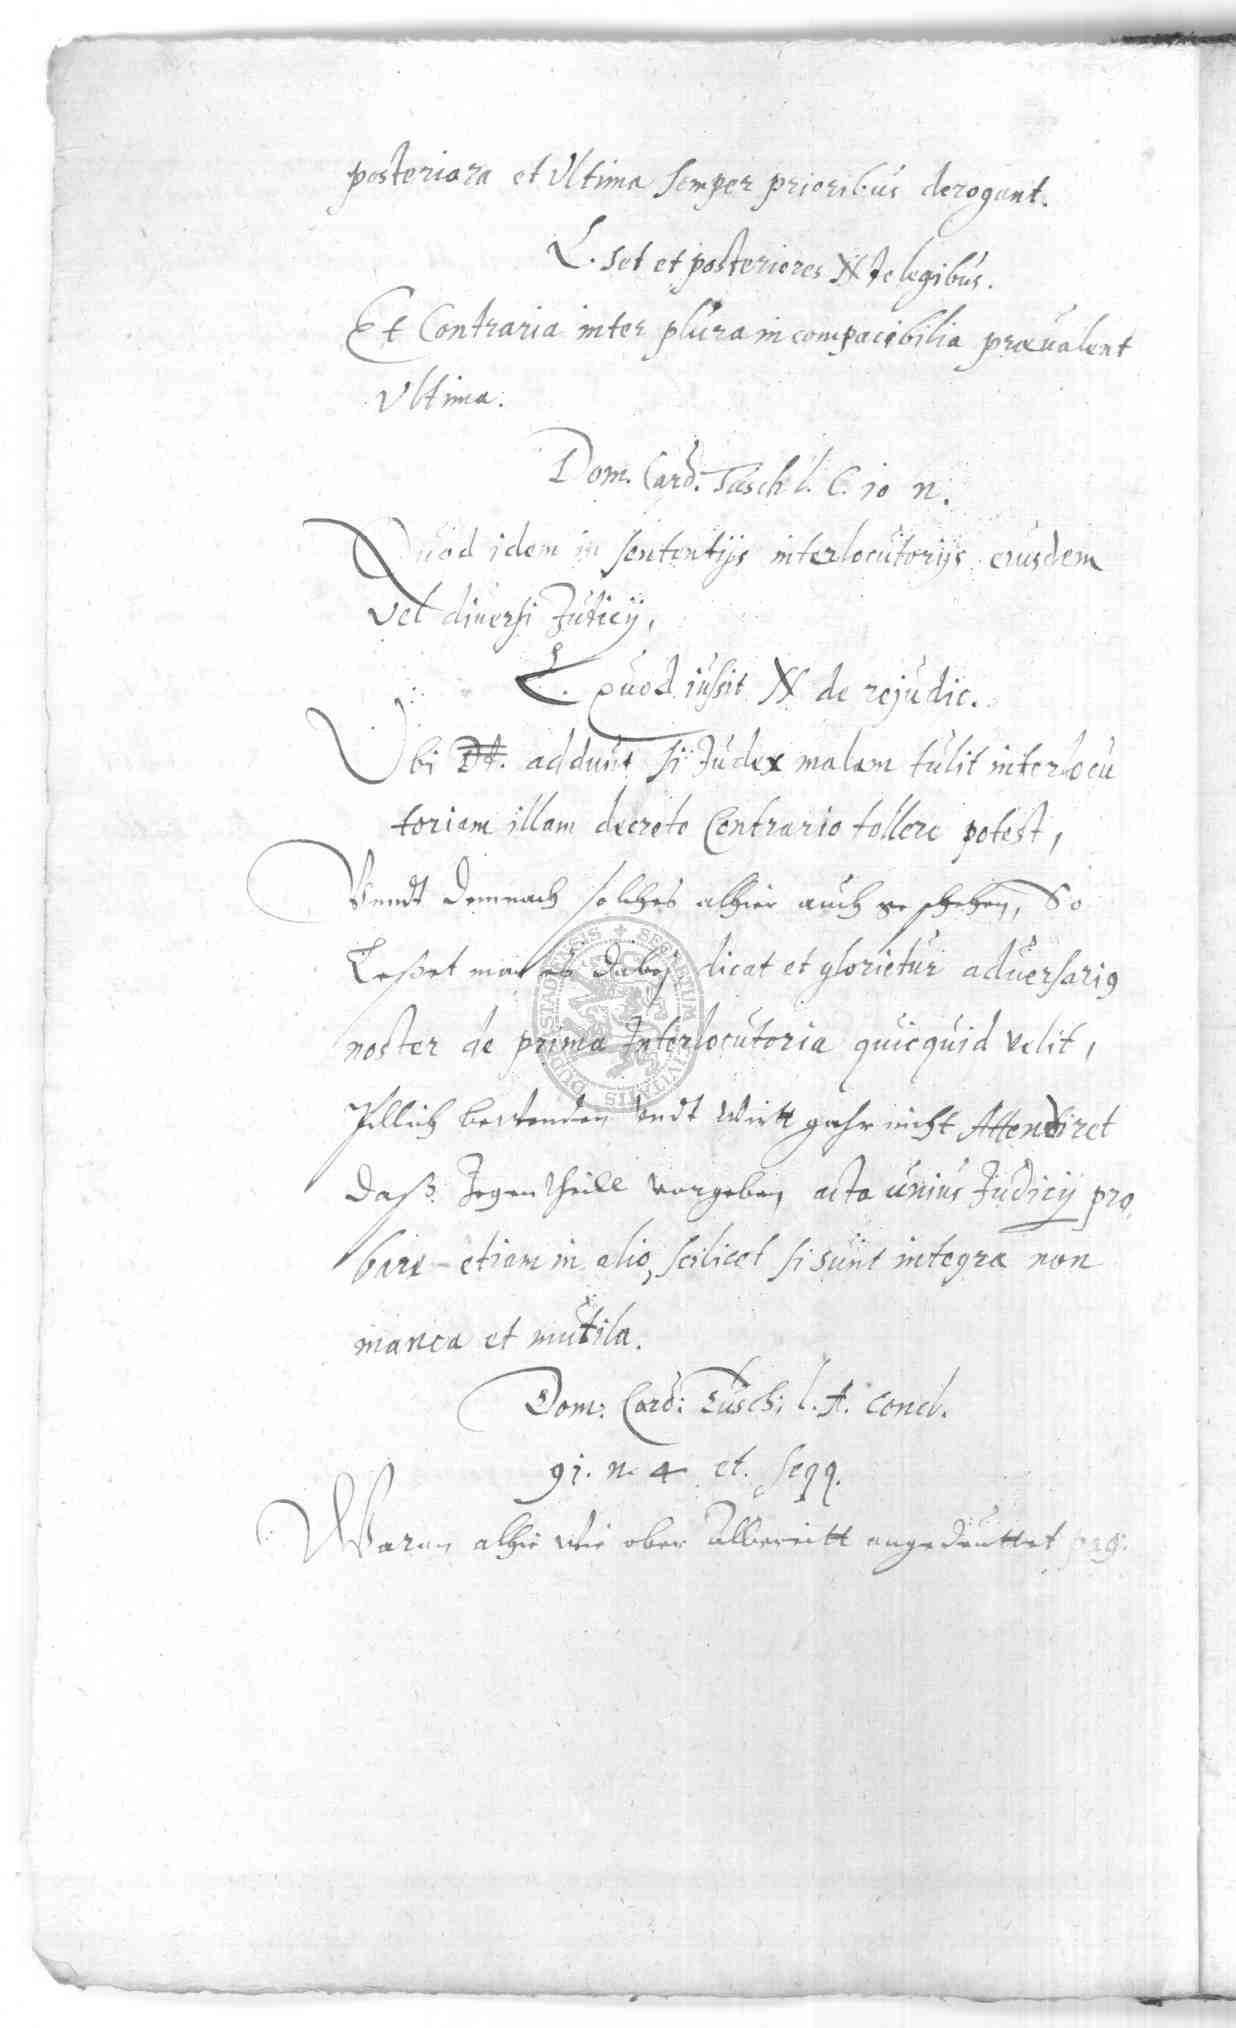 posteriora et Ultima semper prioribus derogant.
L. set et posteriores ff de legibus.
Et Contraria inter plura incompacibilia præualent
Ultima.
Dom. Card. Tusch l. C. 10 n.
Quod idem in sententijs interlocutorijs eiusdem
vel diuersi Judicij,
L. quod iussit ff de re judic.
Ubi Dd. addunt si Judex malam tulit interlocu
toriam illam decreto Contrario tollere potest,
Vnndt demnach solches alhier auch geschehen, So
Leßet man es dabej dicat et glorietur aduersarius
noster de prima Interlocutoria quicquid velit,
Pillich bestenden Vndt Wirtt gahr nicht Attendiret
daß Jegentheill vorgeben, acta unius Judicij pro
bare etiam in alio, scilicet si sunt integra non
manca et mutila.
Dom: Card: Tusch: l. A. Concl.
91. n. 4 et. seqq.
Waran alhie wie oben Albereitt angedeuttet pag.
SECRETUM CIVITATIS DUDERSTADENSIS